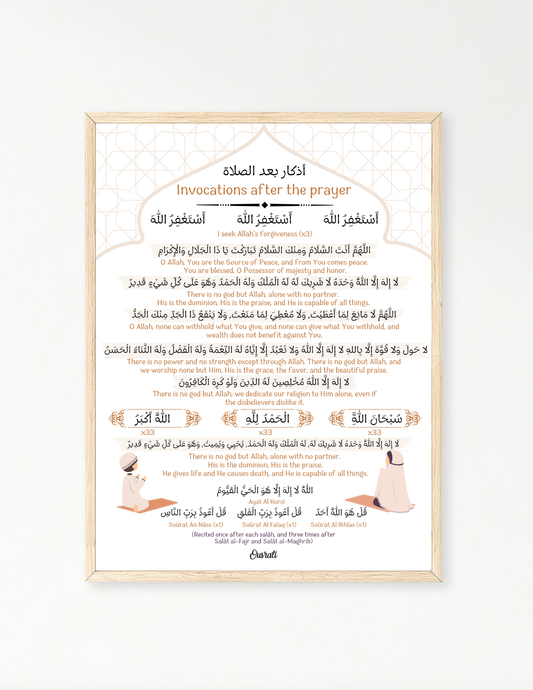 أذكار بعد الصلاة
Invocations after the prayer
أَسْتَغْفِرُ اللهَ أَسْتَغْفِرُ اللهَ أَسْتَغْفِرُ اللهَ
I seek Allah's forgiveness (x3)
اللَّهُمَّ أَنْتَ السَّلَامُ وَمِنْكَ السَّلَامُ تَبَارَكْتَ يَا ذَا الْجَلَالِ وَالْإِكْرَامِ
O Allah, You are the Source of Peace, and from You comes peace.
You are blessed, O Possessor of majesty and honor.
لَا إِلَهَ إِلَّا اللهُ وَحْدَهُ لَا شَرِيكَ لَهُ لَهُ الْمُلْكُ وَلَهُ الْحَمْدُ وَهُوَ عَلَى كُلِّ شَيْءٍ قَدِيرٌ
There is no god but Allah, alone with no partner.
His is the dominion, His is the praise, and He is capable of all things.
اللَّهُمَّ لَا مَانِعَ لِمَا أَعْطَيْتَ, وَلَا مُعْطِيَ لِمَا مَنَعْتَ, وَلَا يَنْفَعُ ذَا الْجَدِّ مِنْكَ الْجَدُّ
O Allah, none can withhold what You give, and none can give what You withhold, and
wealth does not benefit against You.
لَا حَولَ وَلَا قُوَّةَ إِلَّا بِاللهِ لَا إِلَهَ إِلَّا اللهُ وَلَا نَعْبُدُ إِلَّا إِيَّاهُ لَهُ النِّعْمَةُ وَلَهُ الْفَضْلُ وَلَهُ الثَّنَاءُ الْحَسَنُ
There is no power and no strength except through Allah. There is no god but Allah, and
we worship none but Him. His is the grace, the favor, and the beautiful praise.
لَا إِلَهَ إِلَّا اللهُ مُخْلِصِينَ لَهُ الدِّينَ وَلَوْ كَرِهَ الْكَافِرُونَ
There is no god but Allah; we dedicate our religion to Him alone, even if
the disbelievers dislike it.
سُبْحَانَ اللَّهِ الْحَمْدُ لِلَّهِ اللَّهُ أَكْبَرُ
x33 x33 x33
لَا إِلَهَ إِلَّا اللهُ وَحْدَهُ لَا شَرِيكَ لَهُ, لَهُ الْمُلْكُ وَلَهُ الْحَمْدُ, يُحْيِي وَيُمِيتُ, وَهُوَ عَلَى كُلِّ شَيْءٍ قَدِيرٌ
There is no god but Allah, alone with no partner.
His is the dominion, His is the praise.
He gives life and He causes death, and He is capable of all things.
اللهُ لَا إِلَهَ إِلَّا هُوَ الْحَيُّ الْقَيُّومُ
Ayat Al Kursi
قُلْ هُوَ اللَّهُ أَحَدٌ قُلْ أَعُوذُ بِرَبِّ الْفَلَقِ قُلْ أَعُوذُ بِرَبِّ النَّاسِ
Soûrat An Nâss (x1) Soûrat Al Falaq (x1) Soûrat Al Ikhlas (x1)
(Recited once after each salâh, and three times after
Salât al-Fajr and Salât al-Maghrib)
Ousrati